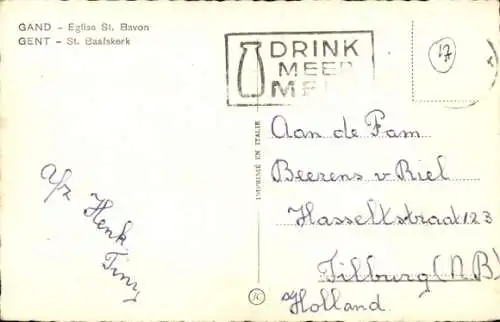 GAND - Eglise St. Bavon
GENT - St. Baafskerk
DRINK
MEER
MELK
17
Aan de Fam
Beerens v Riel
Hasseltstraat 123
Tilburg (N.B)
Holland.
Henk
Tiny
IMPRIMÉ EN ITALIE